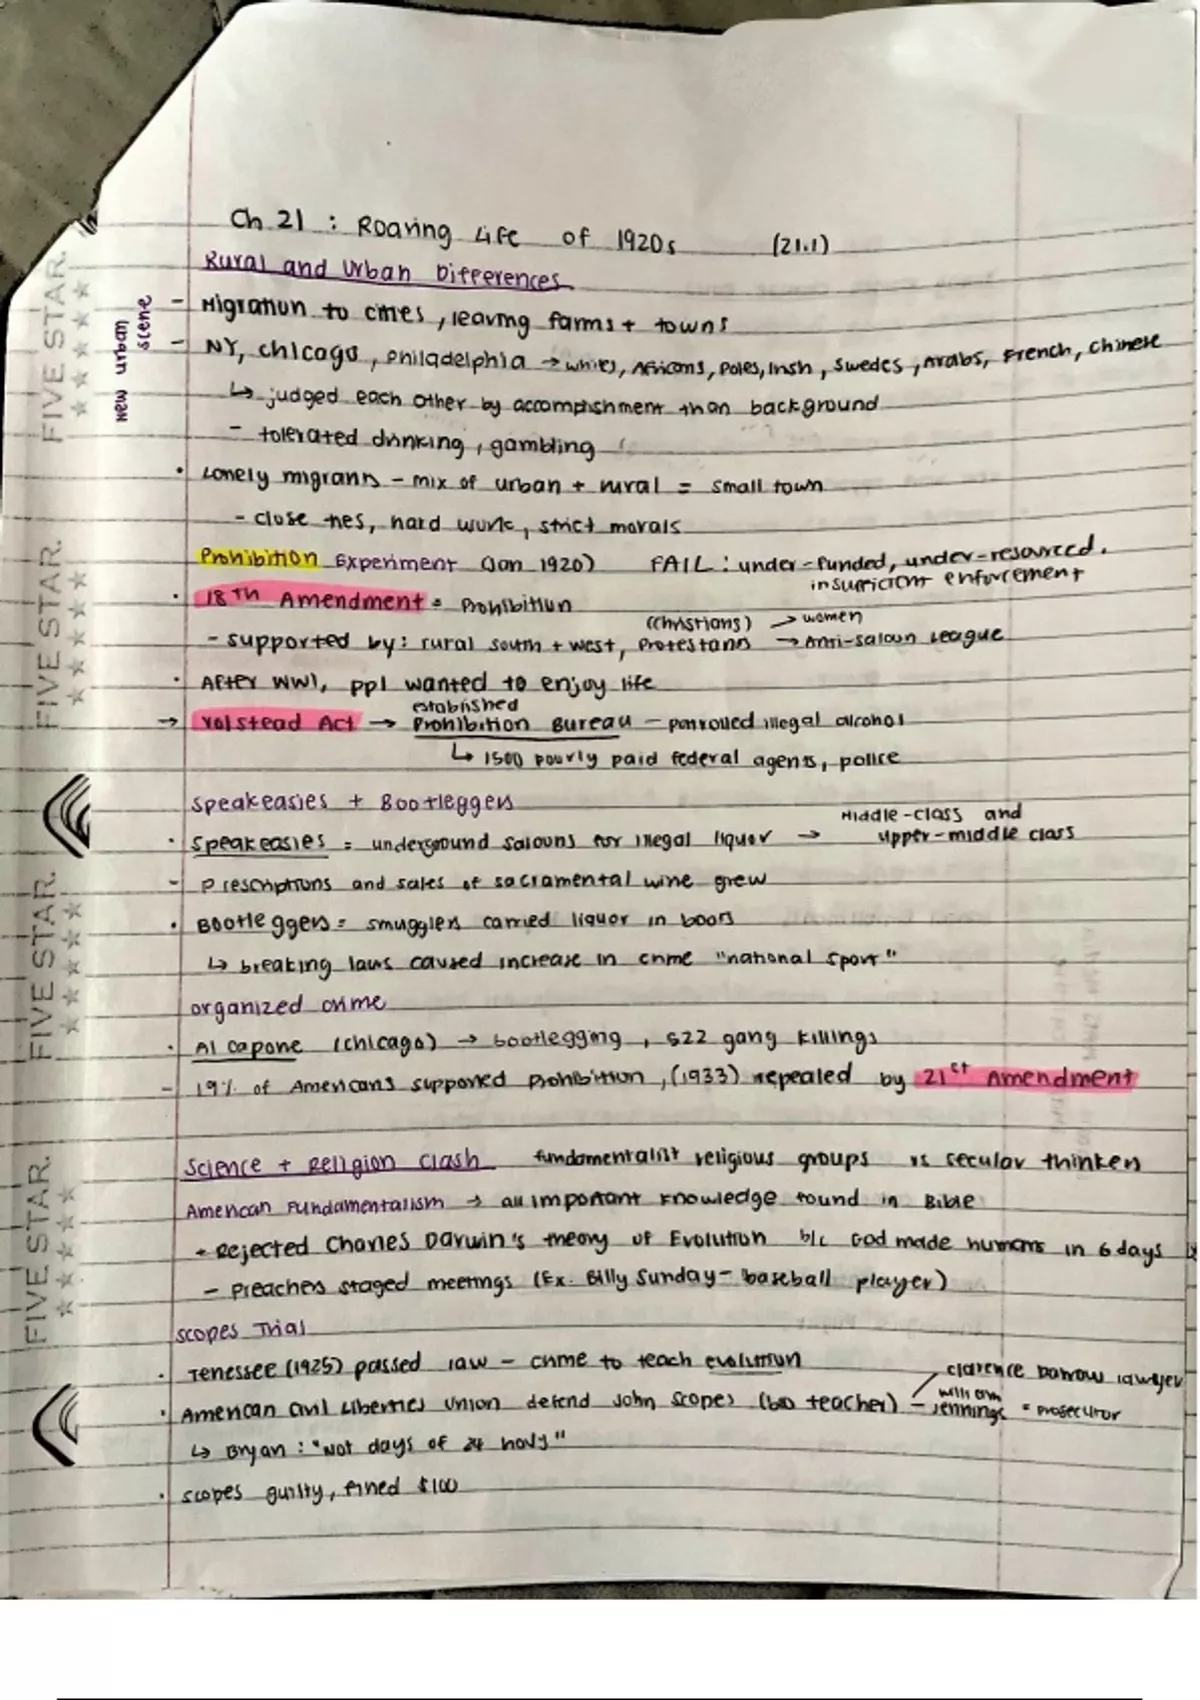 Ch 21 : Roaring Life of 1920s (21.1)
Rural and Urban Differences
New urban scene
- Migration to cities, leaving farms + towns
- NY, Chicago, Philadelphia → whites, Africans, Poles, Irish, Swedes, Arabs, French, Chinese
↳ judged each other by accomplishment than background
- tolerated drinking, gambling
• Lonely migrants - mix of urban + rural = small town
- close ties, hard work, strict morals
Prohibition Experiment (Jan 1920) FAIL : under-funded, under-resourced,
insufficient enforcement
• 18TH Amendment = Prohibition
(Christians) → women
- supported by: rural south + west, Protestants → Anti-saloon League
• After WW1, ppl wanted to enjoy life
established
→ Volstead Act → Prohibition Bureau - patrolled illegal alcohol
↳ 1500 poorly paid federal agents, police
Speakeasies + Bootleggers
Middle-class and
• Speakeasies = underground saloons for illegal liquor → upper-middle class
- Prescriptions and sales of sacramental wine grew
• Bootleggers = smugglers carried liquor in boots
↳ breaking laws caused increase in crime "national sport"
organized crime
• Al Capone (Chicago) → bootlegging, 522 gang killings
- 19% of Americans supported prohibition, (1933) repealed by 21st Amendment
Science + Religion Clash fundamentalist religious groups vs secular thinkers
American Fundamentalism → all important knowledge found in Bible
- Rejected Charles Darwin's theory of Evolution b/c God made humans in 6 days
- Preachers staged meetings (Ex. Billy Sunday - baseball player)
Scopes Trial
• Tenessee (1925) passed law - crime to teach evolution
Clarence Darrow lawyer
• American Civil Liberties Union defend John Scopes (bio teacher) - William Jennings = prosecutor
↳ Bryan : "Not days of 24 hours"
• Scopes guilty, fined $100
FIVE STAR
FIVE STAR.
FIVE STAR.
FIVE STAR.